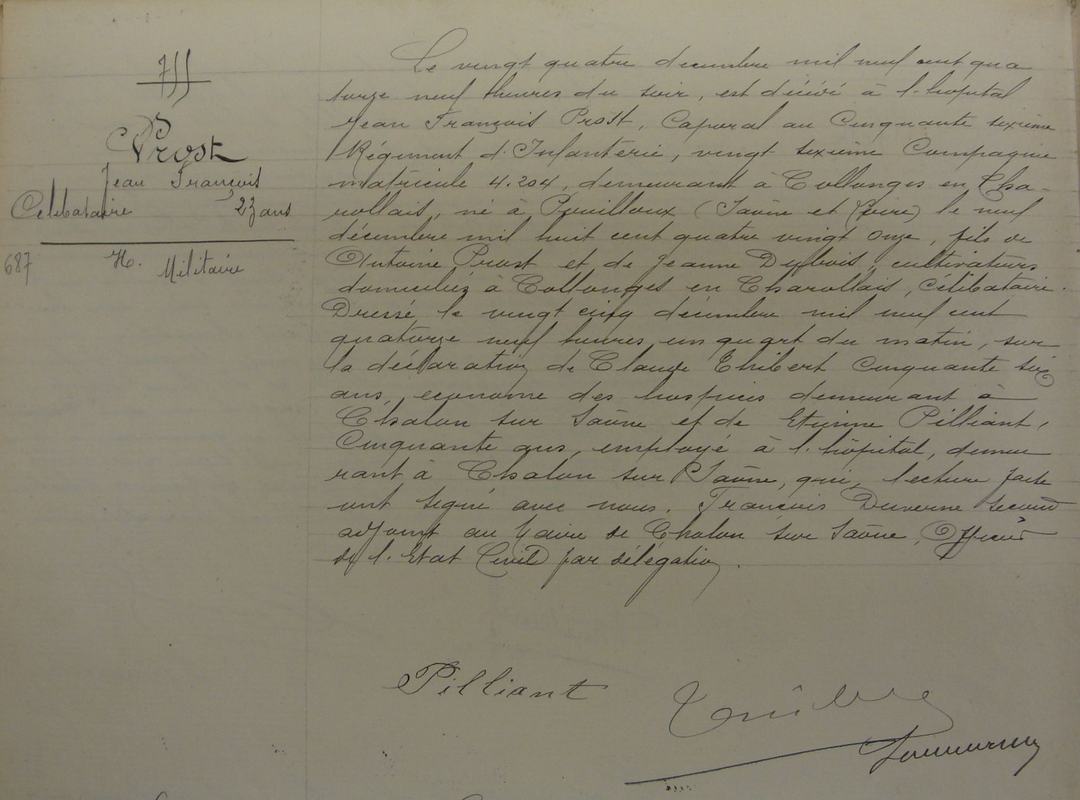 Prost
Jean François
Célibataire 23 ans
687 H. Militaire
Le vingt quatre décembre mil neuf cent qua
torze neuf heures du soir, est décédé à l'hôpital
Jean François Prost, Caporal au Cinquante sixième
Régiment d'Infanterie, vingt sixième Compagnie
matricule 4.204, demeurant à Collonges en Cha-
rollais, né à Pouilloux (Saône et Loire) le neuf
décembre mil huit cent quatre vingt onze, fils de
Antoine Prost et de Jeanne Dubois, cultivateurs
domiciliés à Collonges en Charollais, célibataire.
Dressé le vingt cinq décembre mil neuf cent
quatorze neuf heures un quart du matin, sur
la déclaration de Claude Thibert Cinquante six
ans, économe des hospices demeurant à
Chalon sur Saône et de Etienne Pilliant,
Cinquante ans, employé à l'hôpital, demeu
rant à Chalon sur Saône, qui, lecture faite
ont signé avec nous. François Duverne second
adjoint au Maire de Chalon sur Saône, Officier
de l'Etat Civil par délégation.
Pilliant